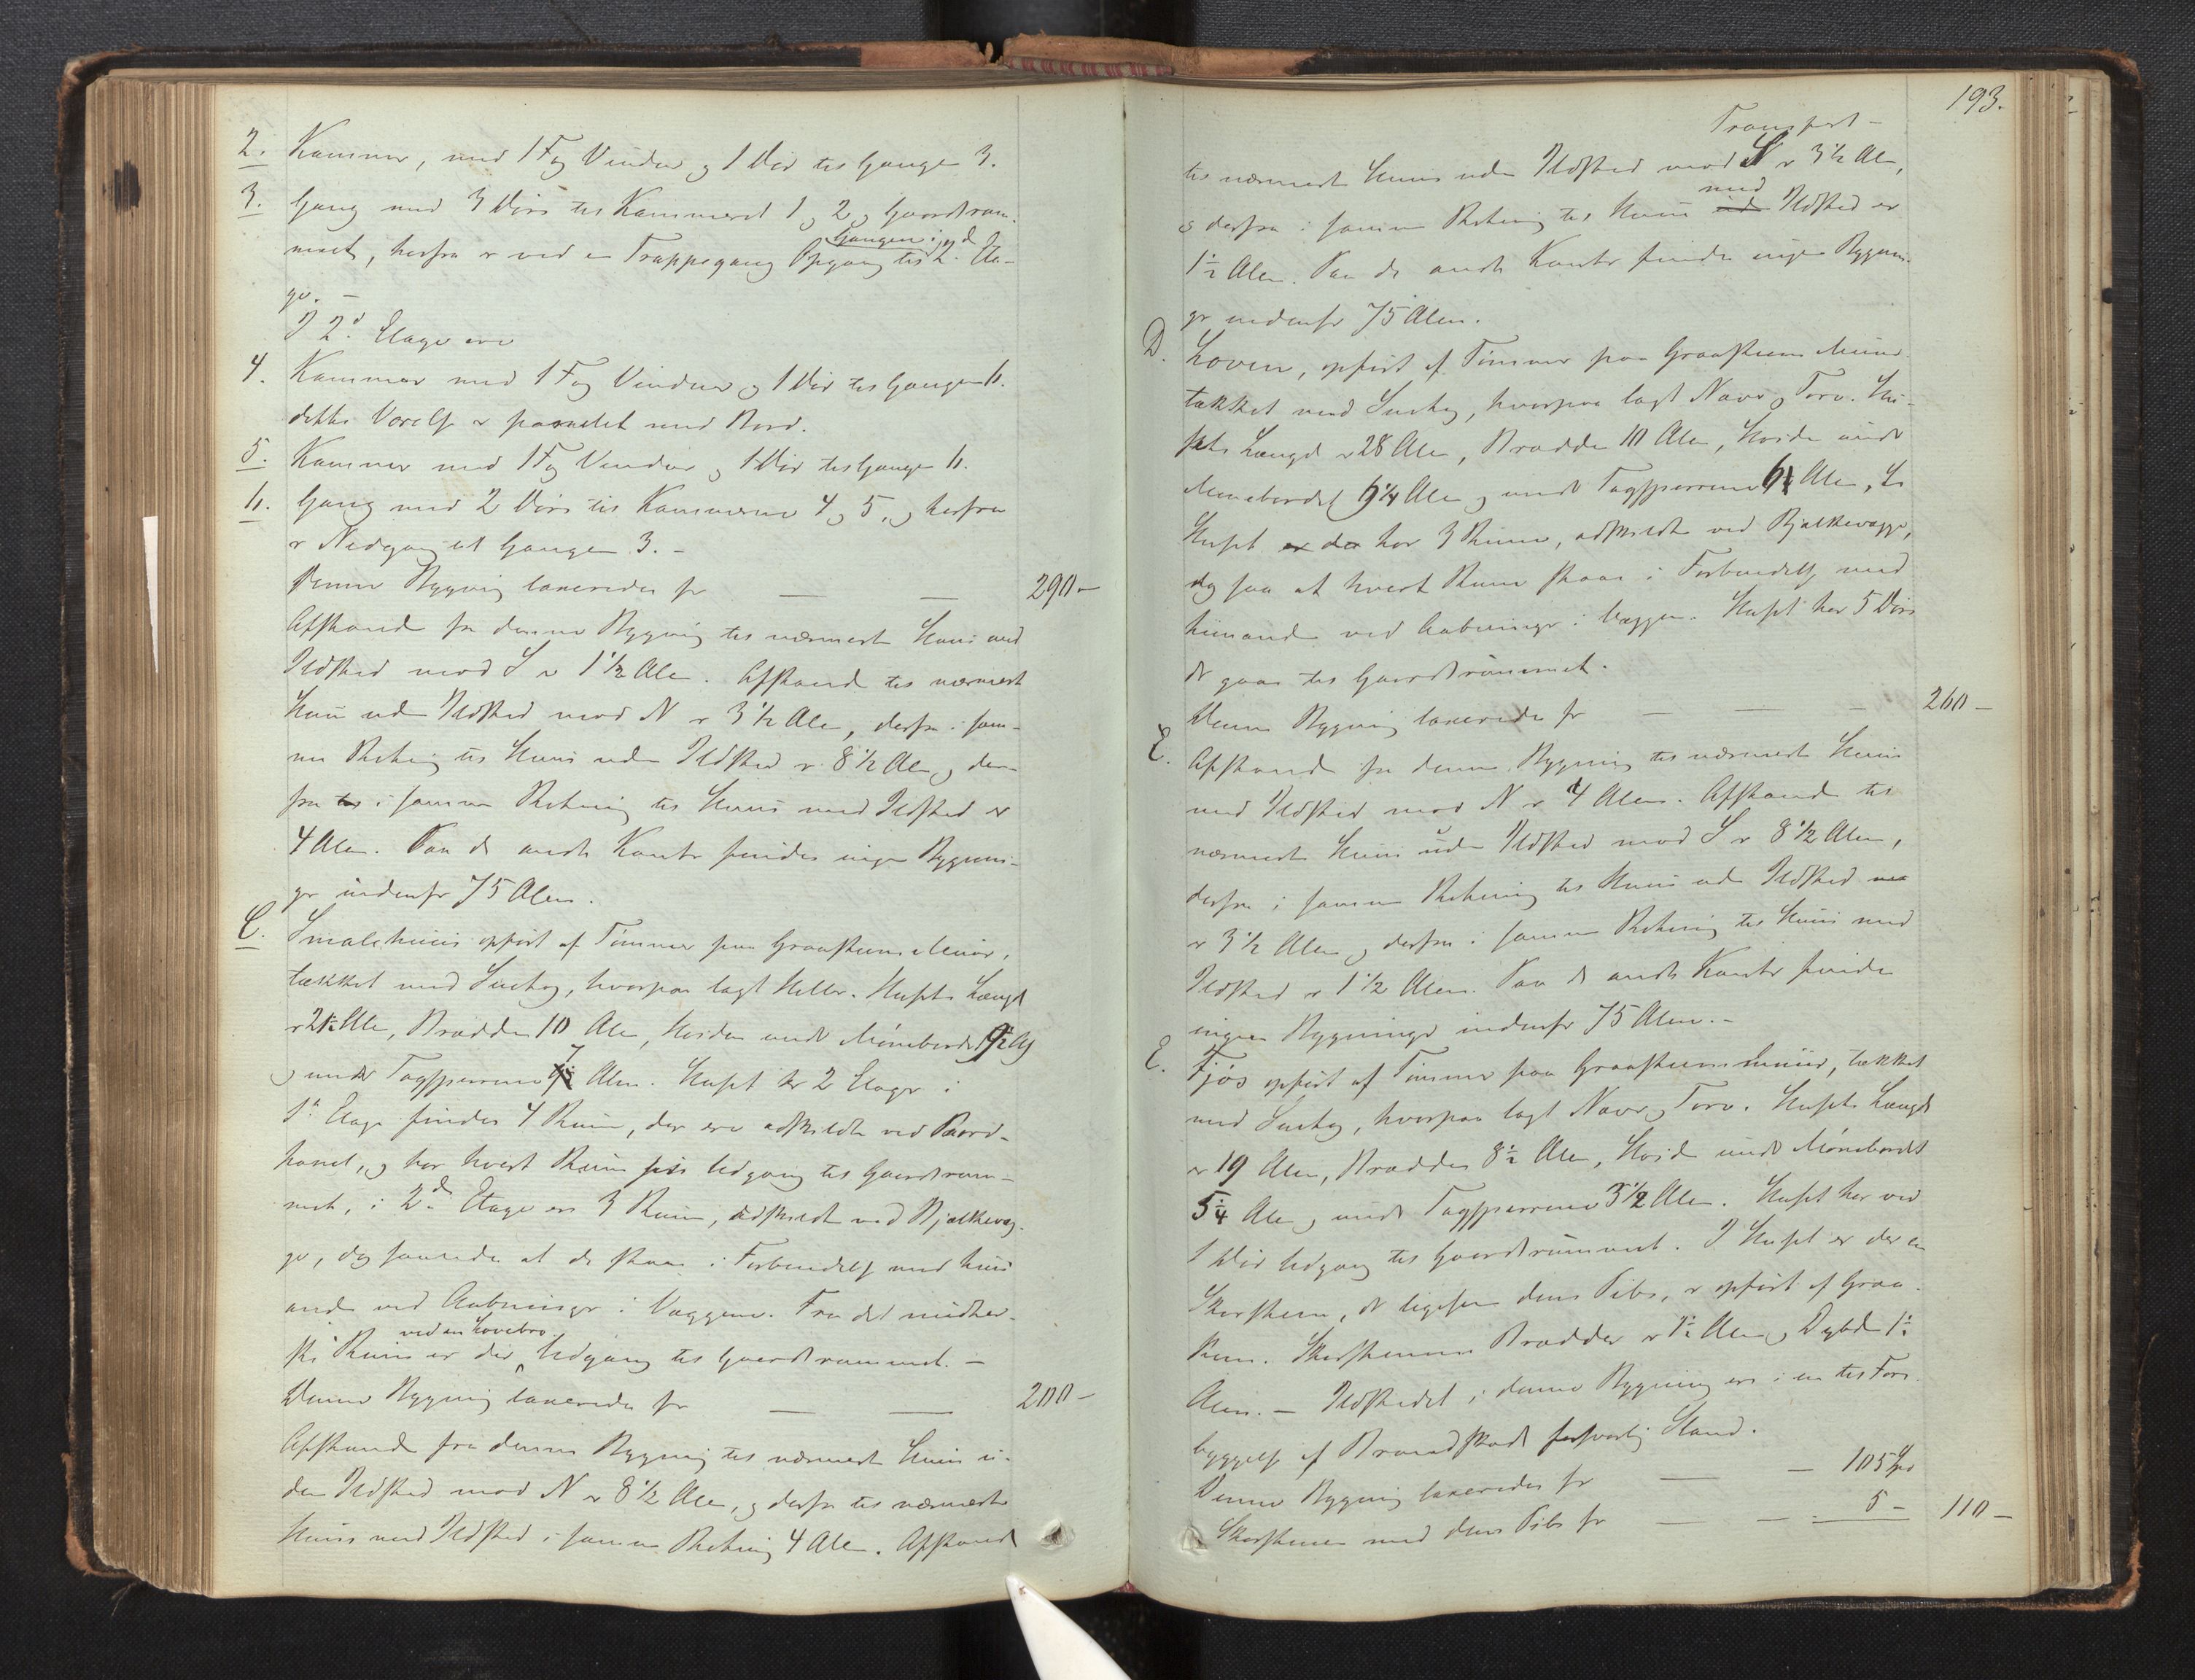 2. Kammer, med 1 Fag Vinduer og 1 Dør til Gangen 3.
3. Gang med 3 Døre til Kammeret 1 og 2 og Gaardsrum-
met, herfra er ved en Trappegang Opgang til Gangen i 2d Eta-
ge. –
I 2d Etage ere
4. Kammer med 1 Fag Vinduer og 1 Dør til Gangen 6.
dette Værelse er panelet med Bord.
5. Kammer med 1 Fag Vinduer og 1 Dør til Gangen 6.
6. Gang med 2 Døre til Kammerne 4 og 5, og herfra
er Nedgang til Gangen 3. –
Denne Bygning taxeredes for — — 290 –
Afstand fra denne Bygning til nærmeste Huus med
Ildsted mod S er 1 1/2 Alen. Afstand til nærmeste
Huus uden Ildsted mod N er 3 1/2 Alen, derfra i sam-
me Retning til Huus uden Ildsted er 8 1/2 Alen og der-
fra i samme Retning til Huus med Ildsted er
4 Alen. Paa de andre Kanter findes ingen Bygnin-
ger indenfor 75 Alen.
C. Smalehuus opført af Tømmer paa Graasteens Muur,
tækket med Sutag, hvorpaa lagt Heller. Husets Længde
er 21 1/2 Alen, Bredde 10 Alen, Høiden under Mønebordet 9 1/2 Al
og under Tagsperrene 7 Alen. Huset har 2 Etager i
1ste Etage findes 4 Rum, der ere adskilte ved Bord-
panel, og har hvert Rum sin Udgang til Gaardsrum-
met, i 2den Etage ere 3 Rum, adskilte ved Bjelkevæg-
ge, dog saaledes at de staae i Forbindelse med hin-
anden ved Aabninger i Væggene. Fra det midter-
ste Rum er der ved en Lovebro Udgang til Gaardsrummet. –
Denne Bygning taxeredes for — — 200 –
Afstand fra denne Bygning til nærmeste Huus u-
den Ildsted mod N er 8 1/2 Alen, og derfra til nærmeste
Huus med Ildsted i samme Retning 4 Alen. Afstand
193.
Transport –
til nærmeste Huus uden Ildsted mod S er 3 1/2 Alen,
og derfra i samme Retning til Huus med Ildsted er
1 1/2 Alen. Paa de andre Kanter findes ingen Bygnin-
ger indenfor 75 Alen.
D. Loven, opført af Tømmer paa Graasteens Muur
tækket med Sutag, hvorpaa lagt Næver og Torv. Hu-
sets Længde er 28 Alen, Bredde 10 Alen, Høide under
Mønebordet 9 1/4 Alen og under Tagsperrene 6 Alen,
Huset har 3 Rum, adskilte ved Bjelkevægge,
dog saa at hvert Rum staar i Forbindelse med
hinanden ved Aabninger i Væggen. Huset har 5 Døre
der gaae til Gaardsrummet.
Denne Bygning taxeredes for — — – 260 –
E. Afstand fra denne Bygning til nærmeste Huus
med Ildsted mod N er 4 Alen. Afstand til
nærmeste Huus uden Ildsted mod S er 8 1/2 Alen,
derfra i samme Retning til Huus uden Ildsted
er 3 1/2 Alen og derfra i samme Retning til Huus med
Ildsted er 1 1/2 Alen. Paa de andre Kanter findes
ingen Bygninger indenfor 75 Alen. –
E. Fjøs opført af Tømmer paa Graasteens Muur, tækket
med Sutag, hvorpaa lagt Næver og Torv. Husets Længde
er 19 Alen, Bredde 8 1/2 Alen, Høide under Mønebordet
5 1/4 Alen og under Tagsperrene 3 1/2 Alen. Huset har ved
1 Dør Udgang til Gaardsrummet. I Huset er der en
Skorsteen, der ligesom dens Pibe, er opført af Graa-
steen. Skorstenens Bredde er 1 1/2 Alen og Dybde 1 1/2
Alen. – Ildstedet i denne Bygning er i en til Fore-
byggelse af Brandskade forsvarlig Stand.
Denne Bygning taxeredes for — – 105 Spd
Skorstenen med dens Pibe for — – 5 – 110 –